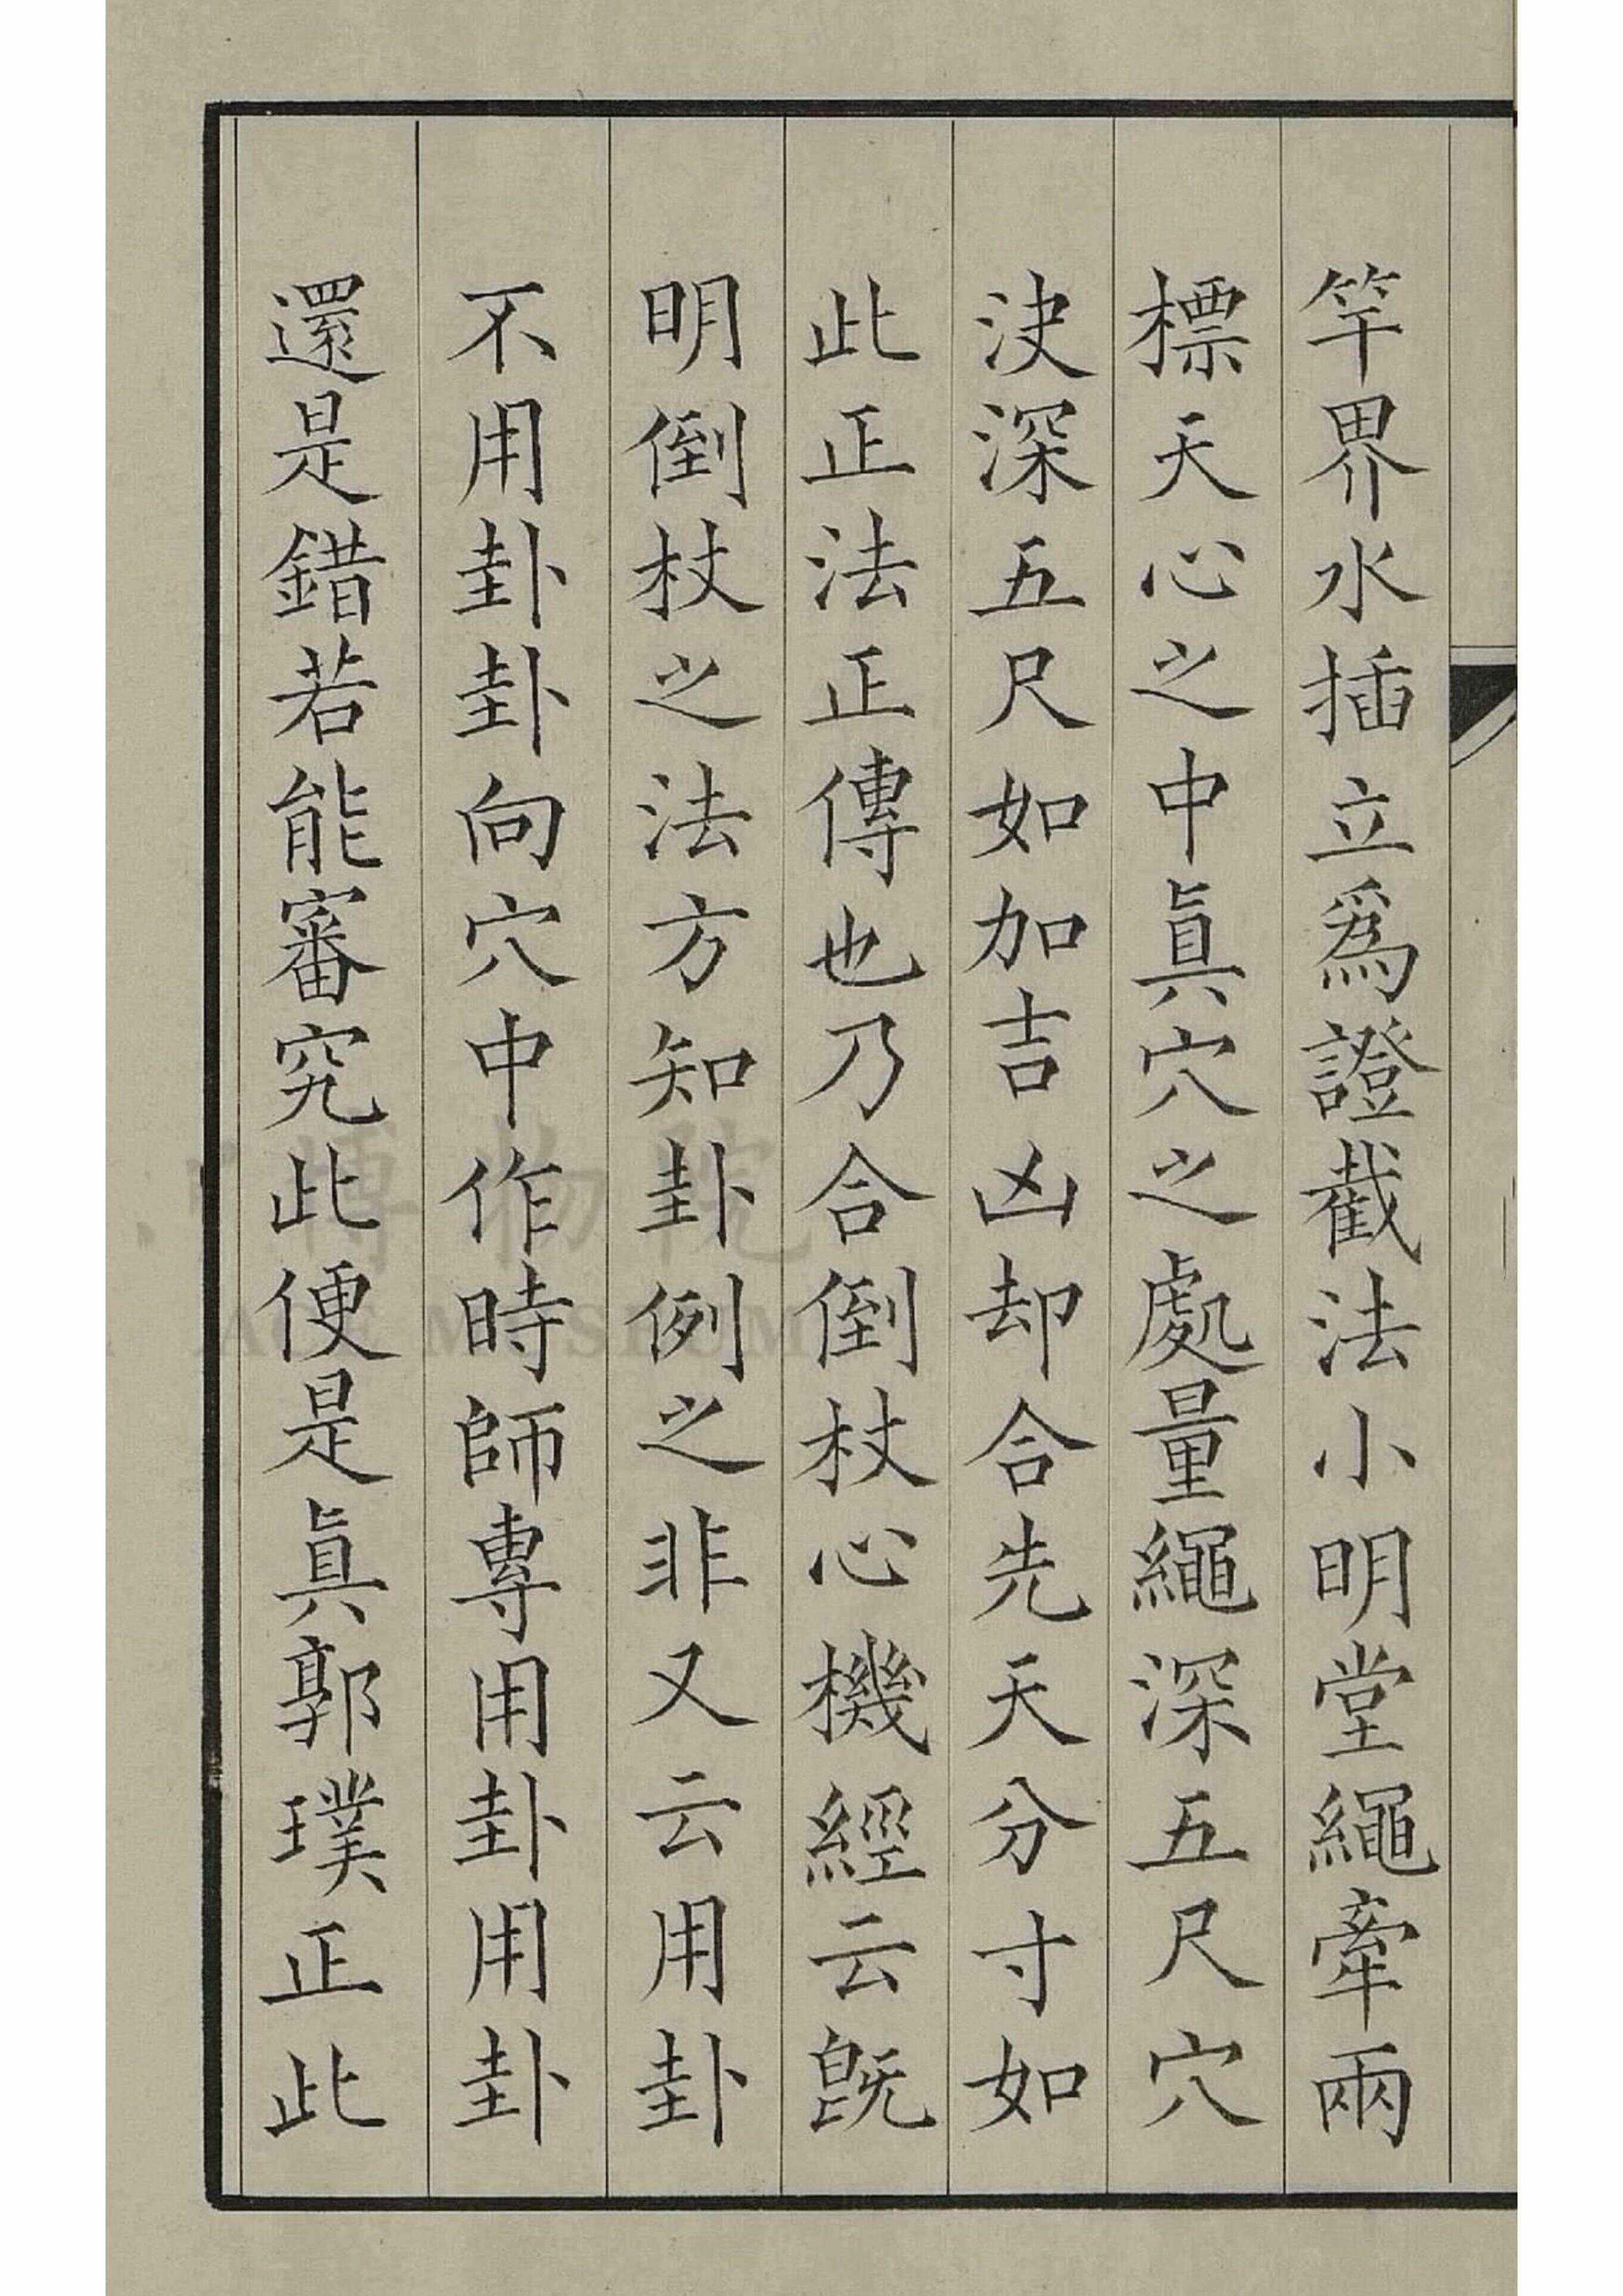 竿界水插立爲證截法小明堂繩牽兩
標天心之中眞穴之處量繩深五尺穴
決深五尺如加吉凶却合先天分寸如
此正法正傳也乃合倒杖心機經云旣
明倒杖之法方知卦例之非又云用卦
不用卦卦向穴中作時師專用卦用卦
還是錯若能審究此便是眞郭璞正此
博物院
MUSEUM